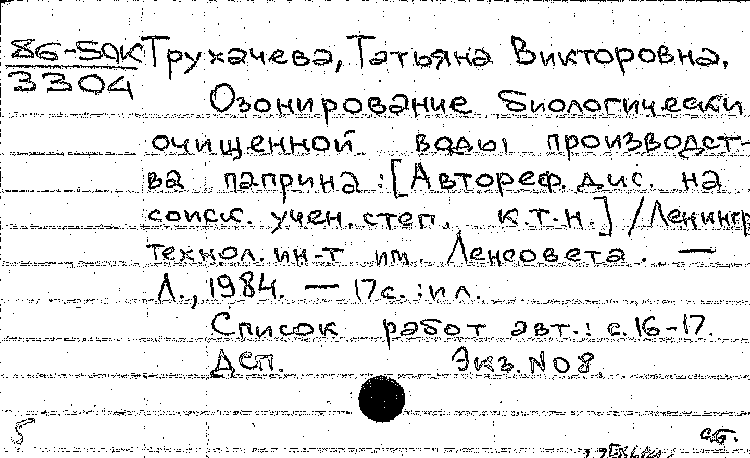 86-5ДК Трухачева, Татьяна Викторовна.
3304
Озонирование биологически
очищенной воды производст-
ва паприна: [Автореф. дис. на
соиск. учен. степ. к.т.н.] / Ленингр
технол. ин-т им. Ленсовета. —
Л., 1984. — 17с.: ил.
Список работ авт.: с. 16-17.
ДСП. Экз. N08.
5 с.б.